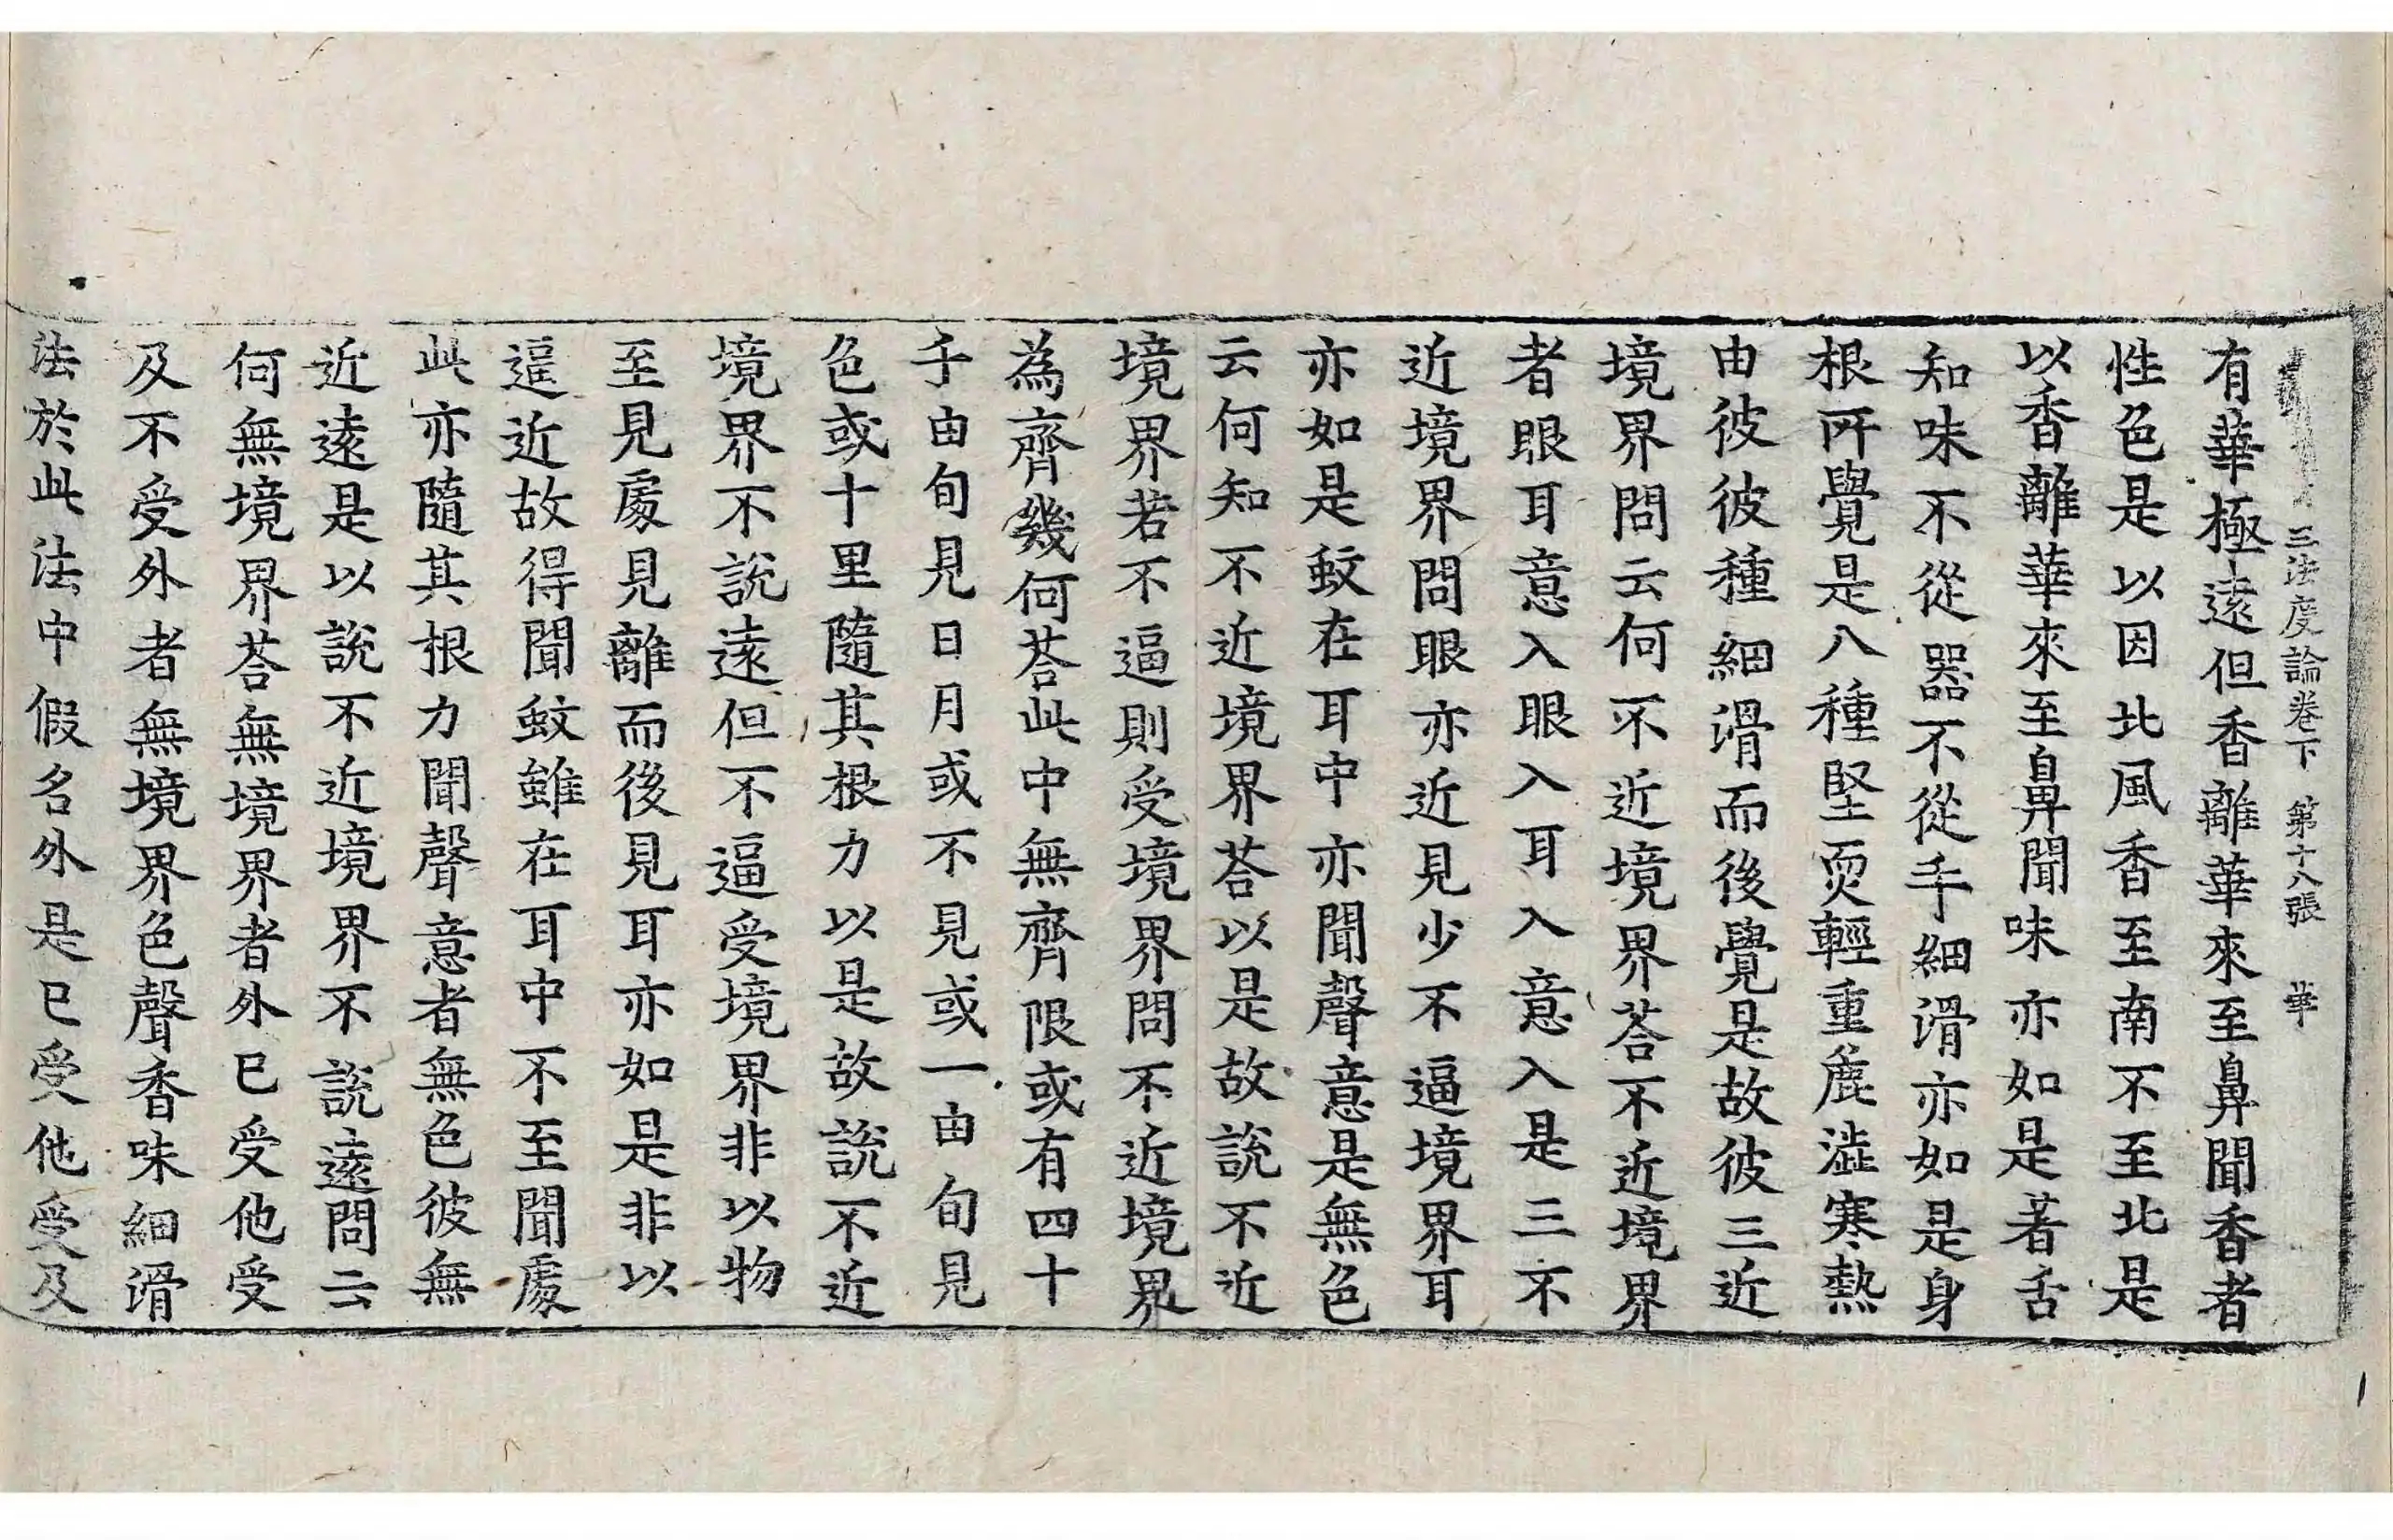 三法度論卷下 第十八張 華
有華極遠但香離華來至鼻聞香者
性色是以因北風香至南不至北是
以香離華來至鼻聞味亦如是著舌
知味不從器不從手細滑亦如是身
根所覺是八種堅耎輕重麁澁寒熱
由彼彼種細滑而後覺是故彼三近
境界問云何不近境界荅不近境界
者眼耳意入眼入耳入意入是三不
近境界問眼亦近見少不逼境界耳
亦如是蚊在耳中亦聞聲意是無色
云何知不近境界荅以是故說不近
境界若不逼則受境界問不近境界
為齊幾何荅此中無齊限或有四十
千由旬見日月或不見或一由旬見
色或十里隨其根力以是故說不近
境界不說遠但不逼受境界非以物
至見處見離而後見耳亦如是非以
逼近故得聞蚊雖在耳中不至聞處
此亦隨其根力聞聲意者無色彼無
近遠是以說不近境界不說遠問云
何無境界荅無境界者外已受他受
及不受外者無境界色聲香味細滑
法於此法中假名外是已受他受及